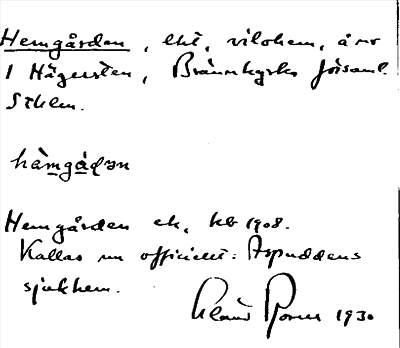 Hemgården, lht, vilohem, å nr
1 Hägersten, Brännkyrka församl.
Sthlm.
hàmgáɖən
Hemgården ek, kb 1908.
Kallas nu officiellt: Aspuddens
sjukhem.
Claës 1930